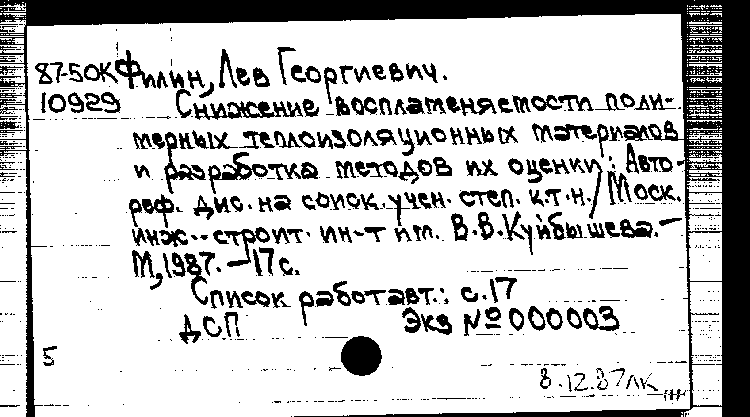 87-50К Филин, Лев Георгиевич.
10929 Снижение воспламеняемости поли-
мерных теплоизоляционных материалов
и разработка методов их оценки: Авто-
реф. дис. на соиск. учен. степ. к.т.н./ Моск.
инж.-строит. ин-т им. В.В. Куйбышева. –
М., 1987. – 17 с.
Список работ авт.: с. 17
ДСП Экз № 000003
5
8.12.87 лк